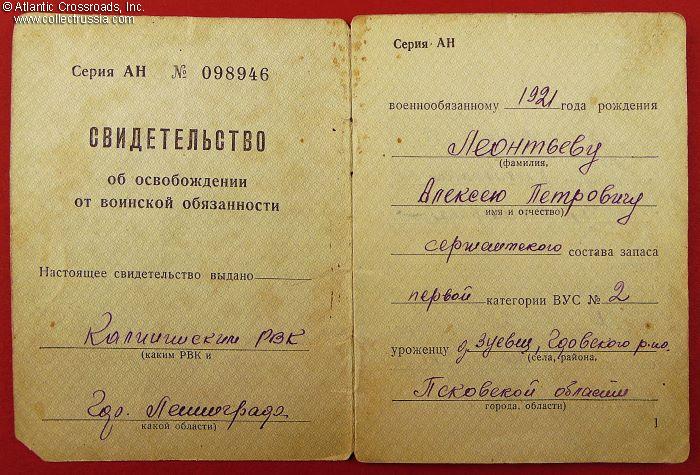 © Atlantic Crossroads, Inc.
www.collectrussia.com
Серия АН № 098946
СВИДЕТЕЛЬСТВО
об освобождении
от воинской обязанности
Настоящее свидетельство выдано
Калининским РВК
(каким РВК и
гор. Ленинграда
какой области)
Серия АН
военнообязанному 1921 года рождения
Леонтьеву
(фамилия,
Алексею Петровичу
имя и отчество)
сержантского состава запаса
первой категории ВУС № 2
уроженцу д. Зуевец, Гдовского р-на
(села, района,
Псковской области
города, области)
1